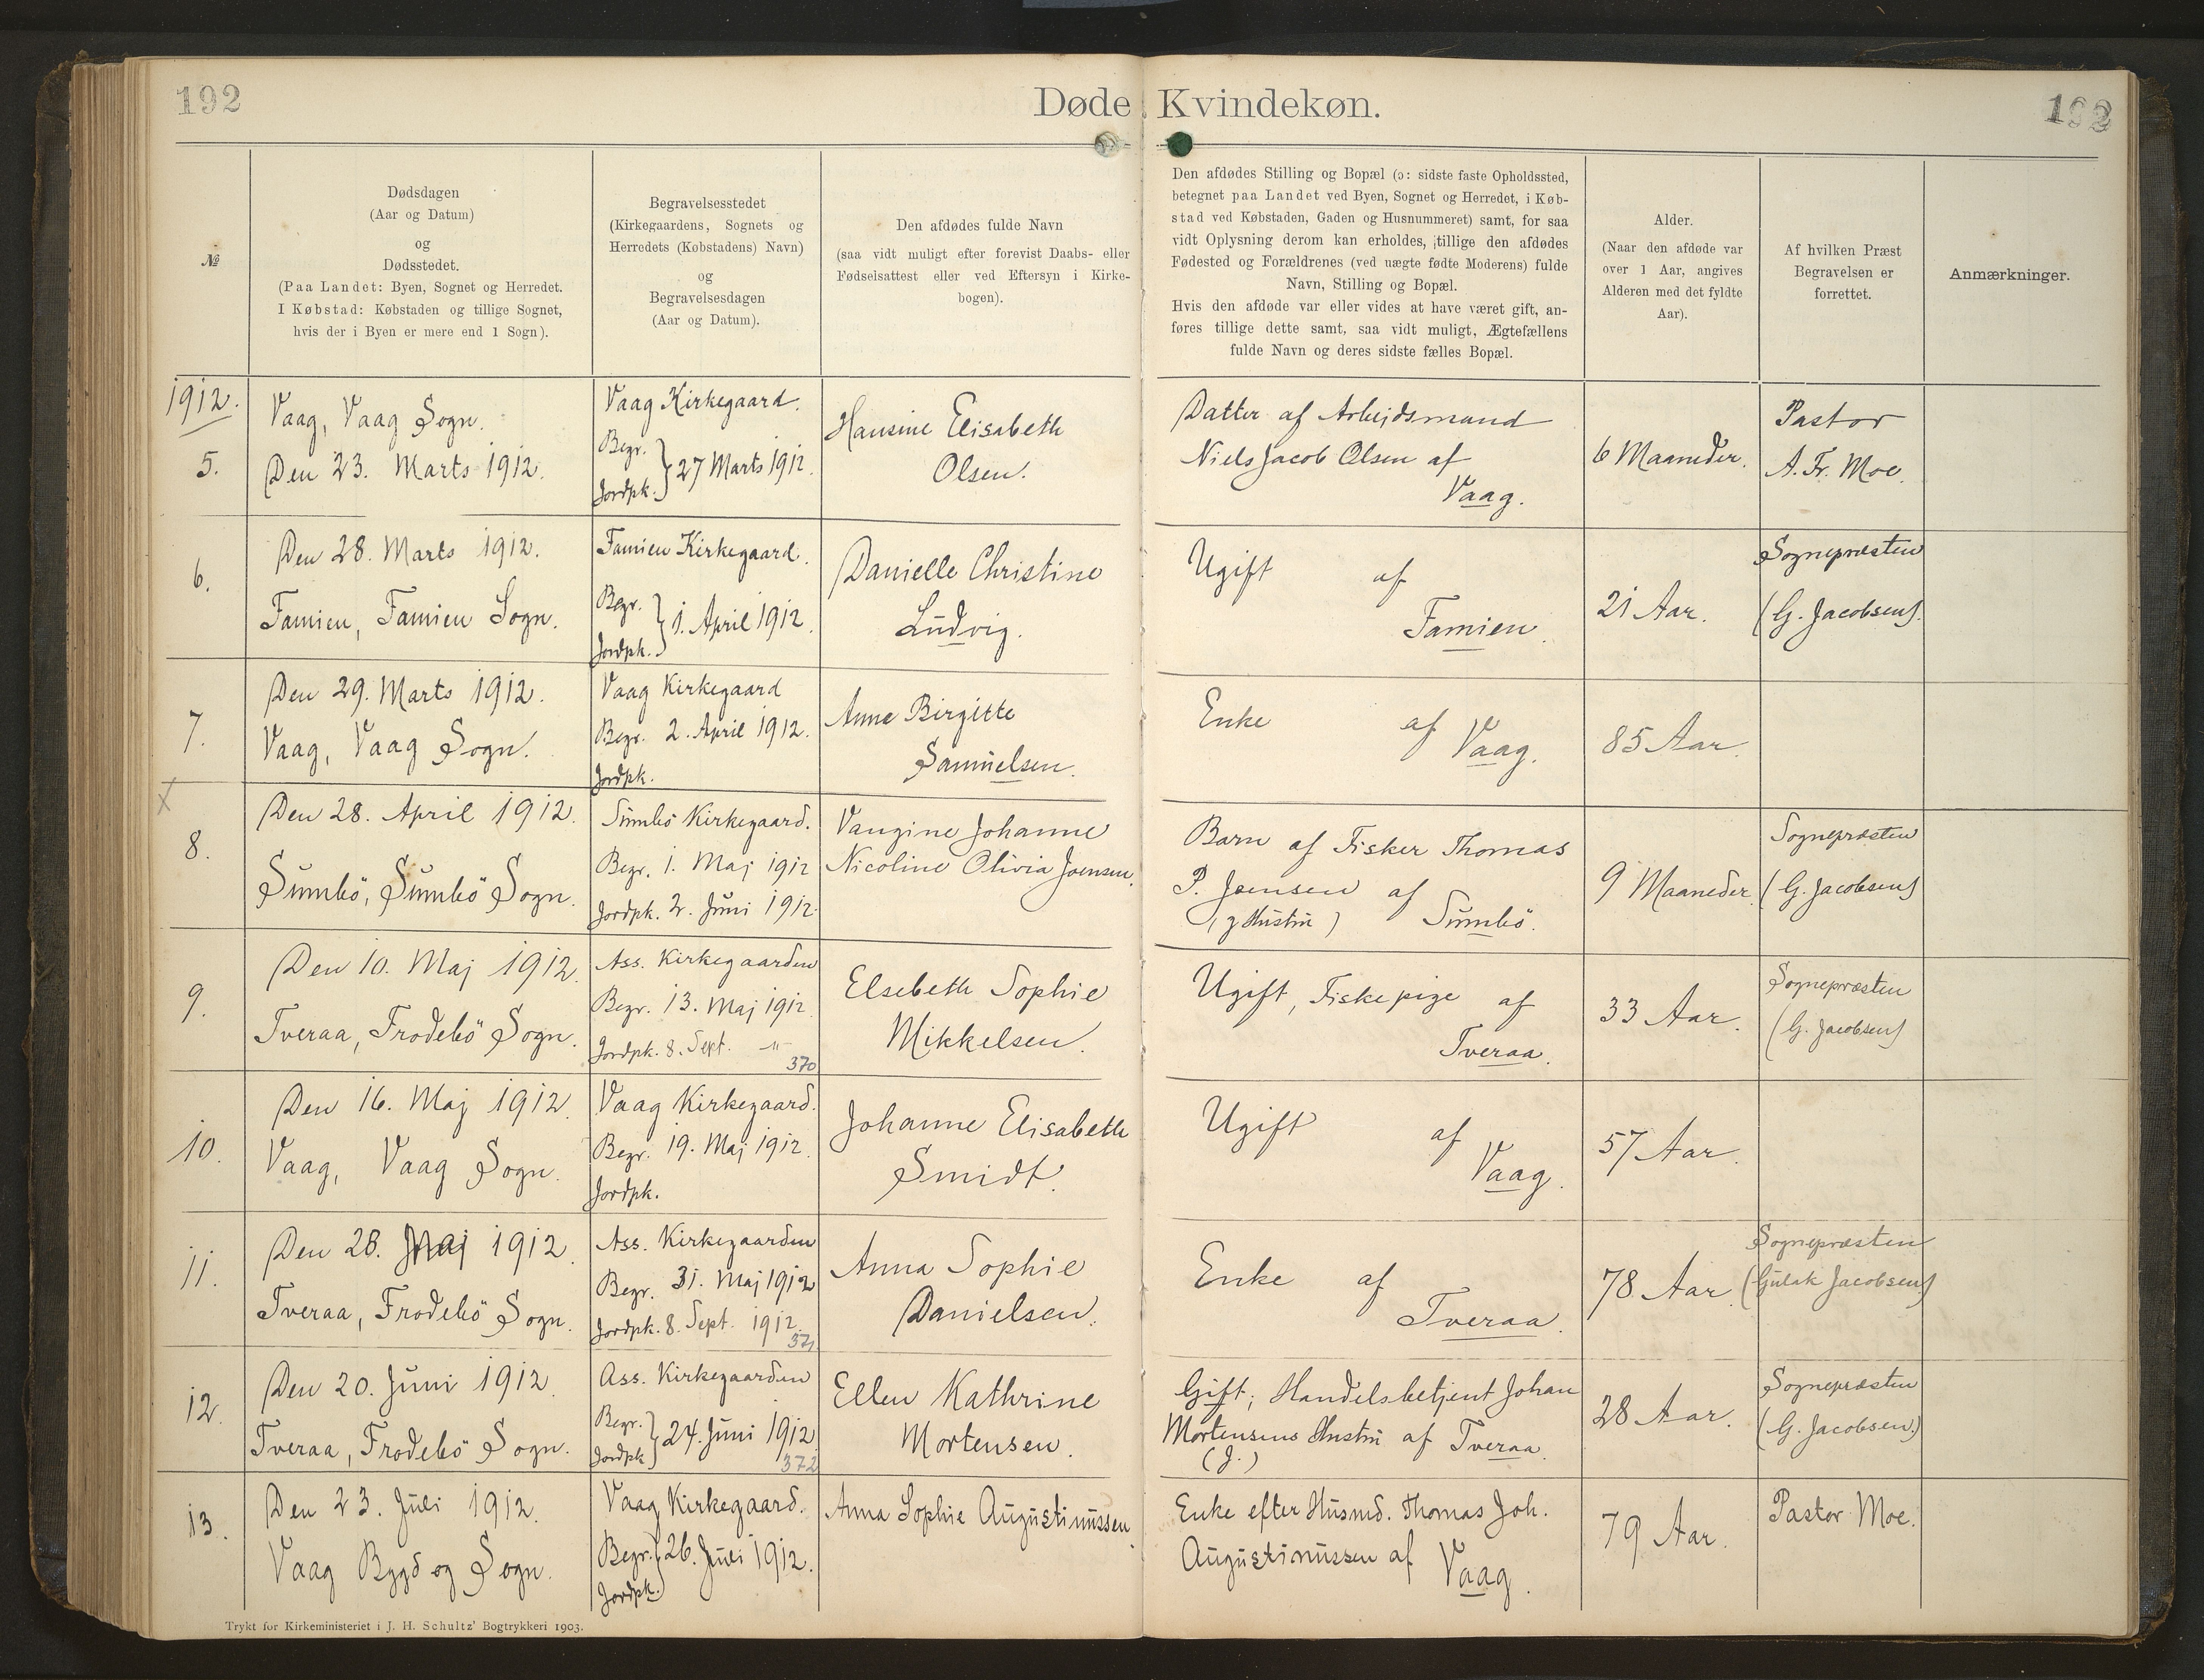 192
Døde Kvindekøn.
192
№
Dødsdagen
(Aar og Datum)
og
Dødsstedet.
(Paa Landet: Byen, Sognet og Herredet.
I Købstad: Købstaden og tillige Sognet,
hvis der i Byen er mere end 1 Sogn).
Begravelsesstedet
(Kirkegaardens, Sognets og
Herredets (Købstadens) Navn)
og
Begravelsesdagen
(Aar og Datum).
Den afdødes fulde Navn
(saa vidt muligt efter forevist Daabs- eller
Fødselsattest eller ved Eftersyn i Kirke-
bogen).
Den afdødes Stilling og Bopæl (ɔ: sidste faste Opholdssted,
betegnet paa Landet ved Byen, Sognet og Herredet, i Køb-
stad ved Købstaden, Gaden og Husnummeret) samt, for saa
vidt Oplysning derom kan erholdes, tillige den afdødes
Fødested og Forældrenes (ved uægte fødte Moderens) fulde
Navn, Stilling og Bopæl.
Hvis den afdøde var eller vides at have været gift, an-
føres tillige dette samt, saa vidt muligt, Ægtefællens
fulde Navn og deres sidste fælles Bopæl.
Alder.
(Naar den afdøde var
over 1 Aar, angives
Alderen med det fyldte
Aar).
Af hvilken Præst
Begravelsen er
forrettet.
Anmærkninger.
1912.
5.
Vaag, Vaag Sogn.
Den 23. Marts 1912.
Vaag Kirkegaard.
Begr.
Jordpk. } 27 Marts 1912.
Hansine Elisabeth
Olsen.
Datter af Arbejdsmand
Niels Jacob Olsen af
Vaag.
6 Maaneder.
Pastor
A. Fr. Moe.
6.
Den 28. Marts 1912.
Famien, Famien Sogn.
Famien Kirkegaard.
Begr.
Jordpk. } 1. April 1912.
Danielle Christine
Ludvig.
Ugift af
Famien.
21 Aar.
Sognepræsten
(G. Jacobsen).
7.
Den 29. Marts 1912.
Vaag, Vaag Sogn.
Vaag Kirkegaard
Begr. 2. April 1912.
Jordpk.
Anne Birgitte
Samuelsen.
Enke af Vaag.
85 Aar.
X
8.
Den 28. April 1912.
Sumbö, Sumbö Sogn.
Sumbö Kirkegaard.
Begr. 1. Maj 1912
Jordpk. 2. Juni 1912.
Vangine Johanne
Nicoline Olivia Joensen.
Barn af Fisker Thomas
P. Joensen af
(g Hustru) Sumbö.
9 Maaneder.
Sognepræsten
(G. Jacobsen)
9.
Den 10. Maj 1912.
Tveraa, Frodebö Sogn.
Ass. Kirkegaarden
Begr. 13. Maj 1912.
Jordpk. 8. Sept. -"-
370
Elsebeth Sophie
Mikkelsen.
Ugift, Fiskepige af
Tveraa.
33 Aar.
Sognepræsten
(G. Jacobsen)
10.
Den 16. Maj 1912.
Vaag, Vaag Sogn.
Vaag Kirkegaard.
Begr. 19. Maj 1912.
Jordpk.
Johanne Elisabeth
Smidt.
Ugift af
Vaag.
57 Aar.
11.
Den 28. Maj 1912.
Tveraa, Frodebö Sogn.
Ass. Kirkegaarden
Begr. 31. Maj 1912
Jordpk. 8. Sept. 1912.
371
Anna Sophie
Danielsen.
Enke af
Tveraa.
78 Aar.
Sognepræsten
(Gulak Jacobsen)
12.
Den 20. Juni 1912.
Tveraa, Frodebö Sogn.
Ass. Kirkegaarden
Begr.
Jordpk } 24. Juni 1912
372
Ellen Kathrine
Mortensen.
Gift; Handelsbetjent Johan
Mortensens Hustru af Tveraa.
(J.)
28 Aar.
Sognepræsten
(G. Jacobsen.)
13.
Den 23. Juli 1912.
Vaag Bygd og Sogn.
Vaag Kirkegaard.
Begr.
Jordpk. } 26. Juli 1912.
Anna Sophie Augustinussen.
Enke efter Husmd. Thomas Joh.
Augustinussen af Vaag.
79 Aar.
Pastor Moe.
Trykt for Kirkeministeriet i J. H. Schultz' Bogtrykkeri 1903.